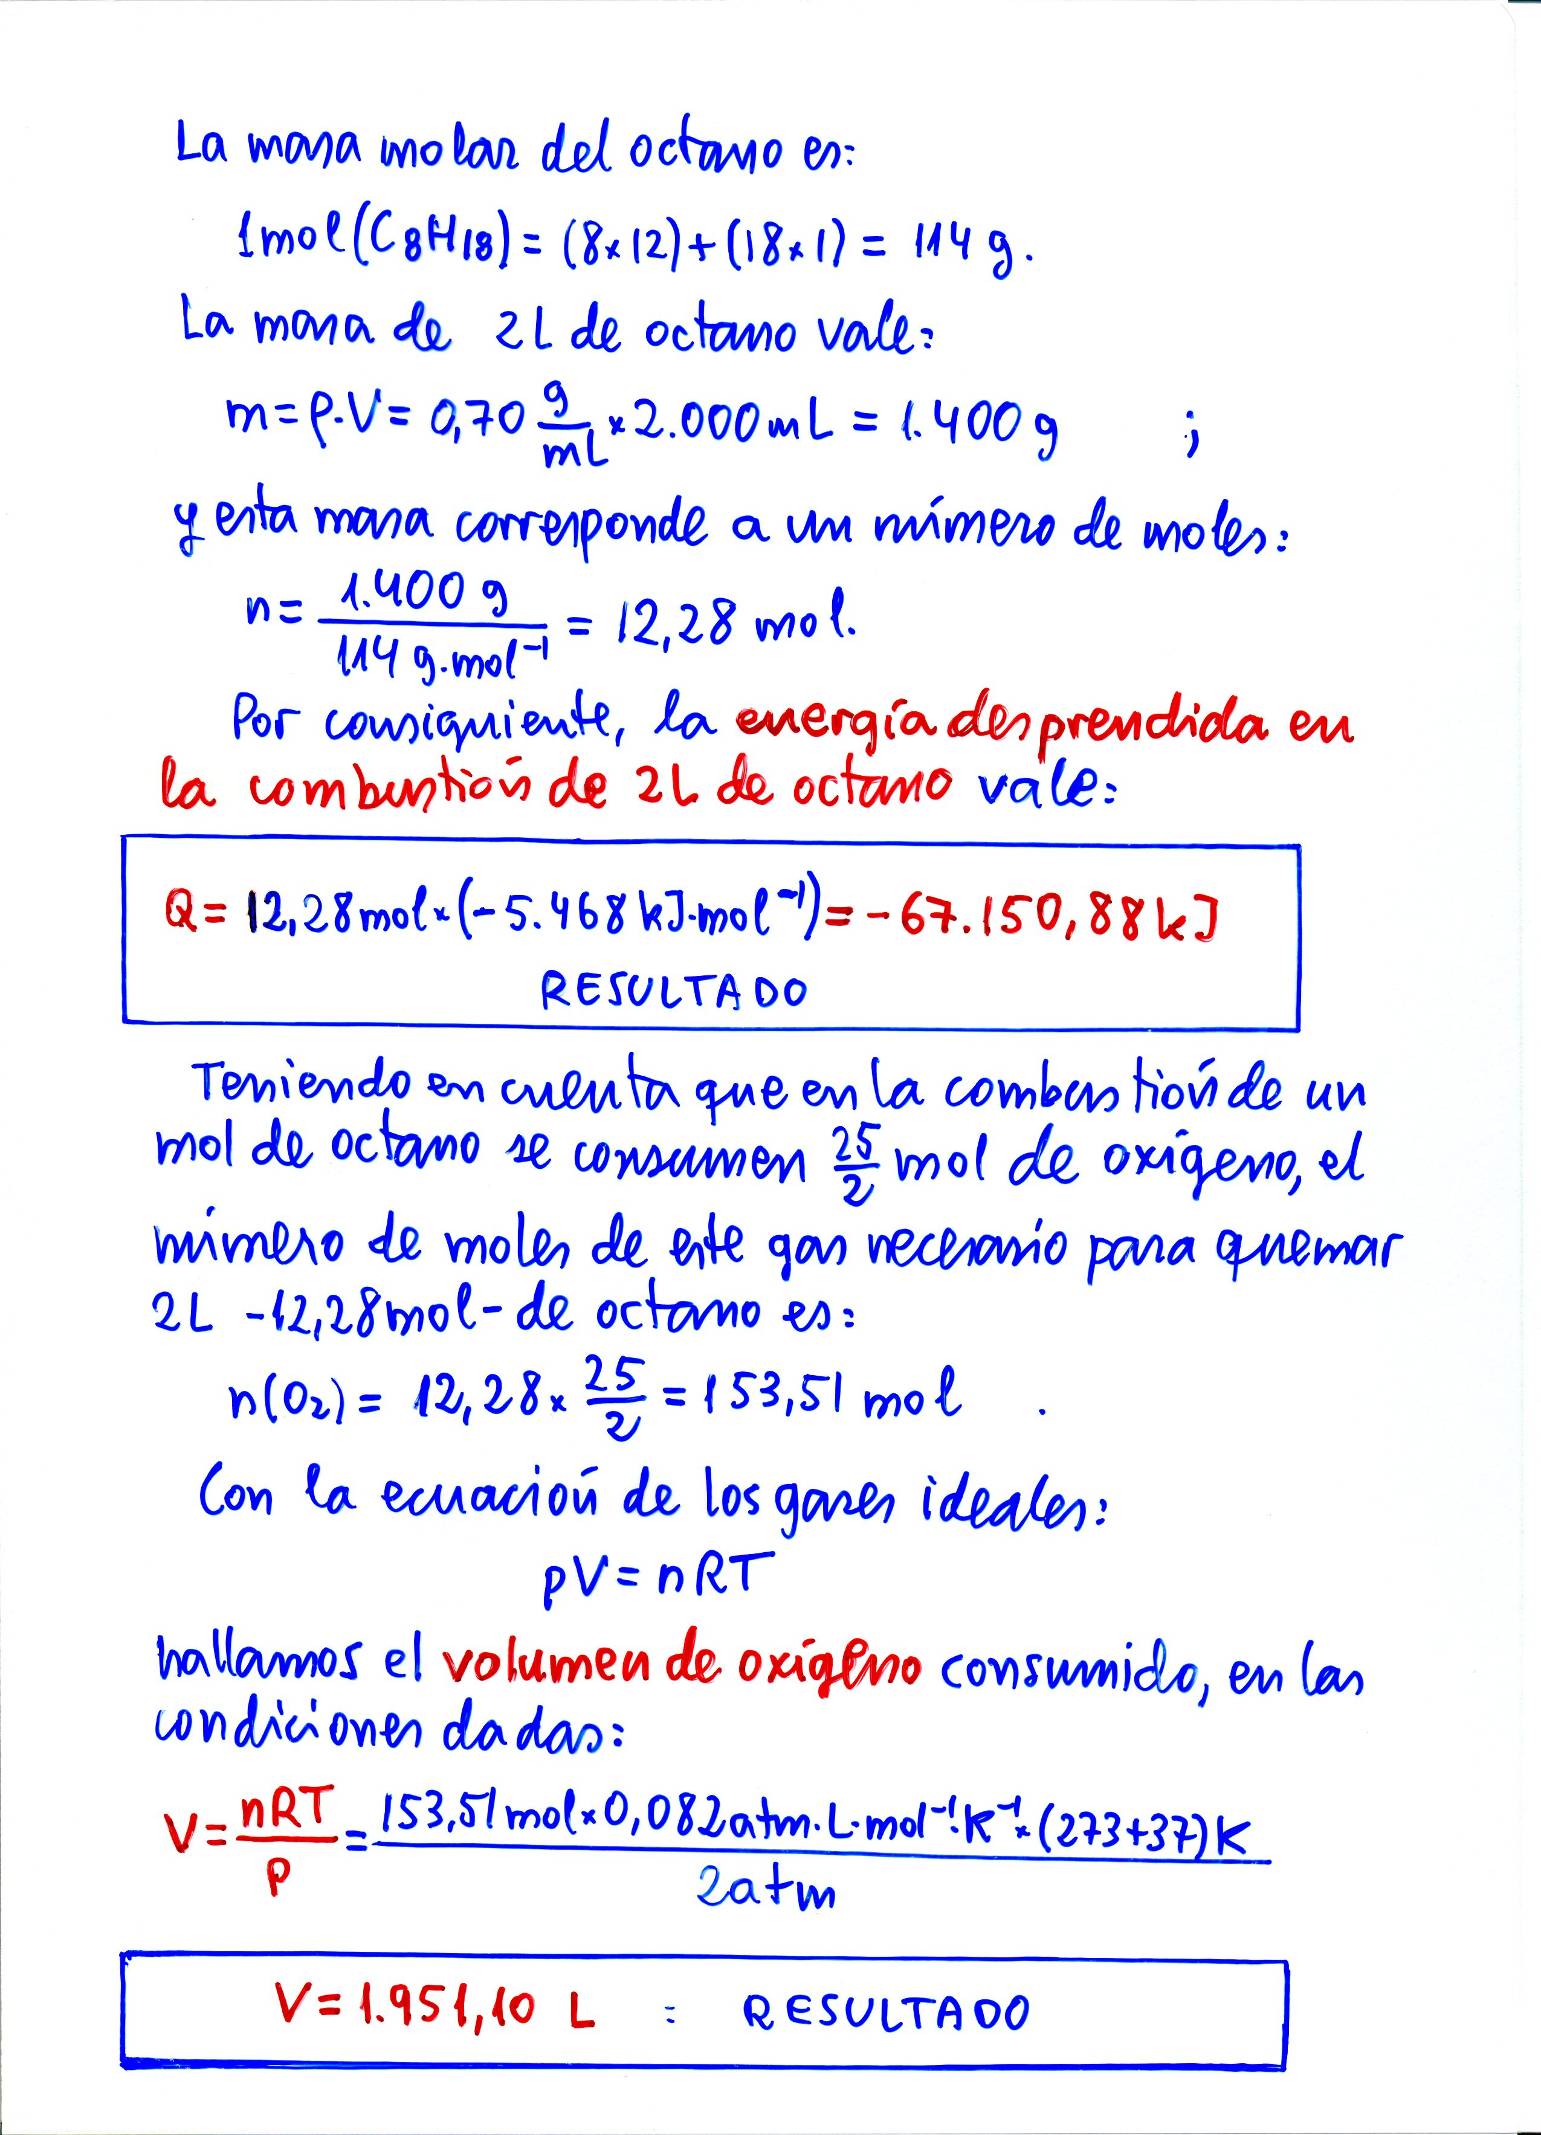 La masa molar del octano es:
1 mol (C8H18) = (8×12) + (18×1) = 114 g.
La masa de 2L de octano vale:
m = ρ·V = 0,70 g/mL × 2.000 mL = 1.400 g ;
y esta masa corresponde a un número de moles:
n = 1.400 g / 114 g·mol⁻¹ = 12,28 mol.
Por consiguiente, la energía desprendida en
la combustión de 2L de octano vale:
Q = 12,28 mol × (-5.468 kJ·mol⁻¹) = -67.150,88 kJ
RESULTADO
Teniendo en cuenta que en la combustión de un
mol de octano se consumen 25/2 mol de oxígeno, el
número de moles de este gas necesario para quemar
2L -12,28 mol- de octano es:
n(O2) = 12,28 × 25/2 = 153,51 mol .
Con la ecuación de los gases ideales:
pV = nRT
hallamos el volumen de oxígeno consumido, en las
condiciones dadas:
V = nRT/p = 153,51 mol × 0,082 atm·L·mol⁻¹·K⁻¹ × (273+37) K / 2 atm
V = 1.951,10 L : RESULTADO